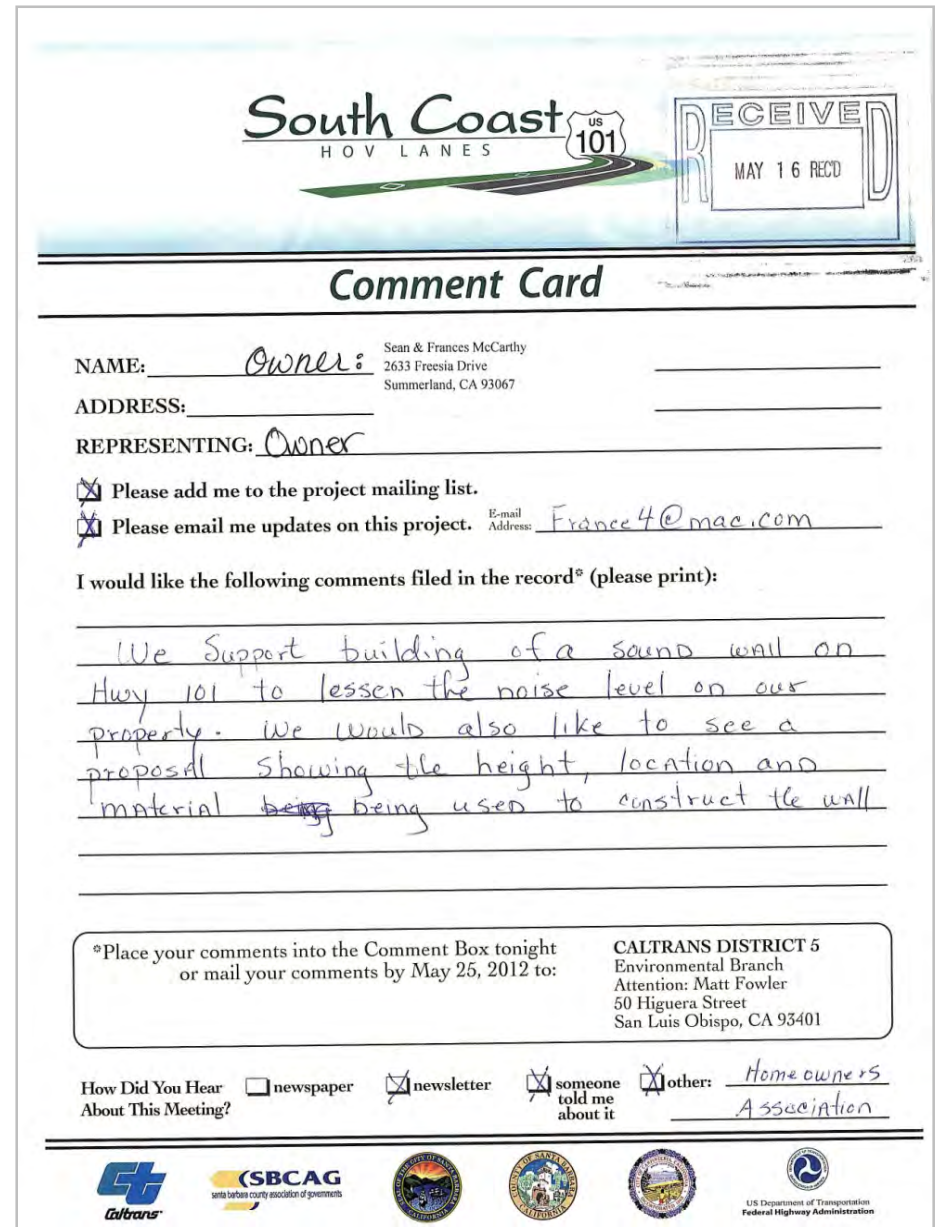 South Coast
HOV LANES
US
101
RECEIVED
MAY 16 REC'D
Comment Card
NAME: Owner:
Sean & Frances McCarthy
2633 Freesia Drive
Summerland, CA 93067
ADDRESS:
REPRESENTING: Owner
Please add me to the project mailing list.
Please email me updates on this project. E-mail Address: France4@mac.com
I would like the following comments filed in the record* (please print):
We Support building of a sound wall on
Hwy 101 to lessen the noise level on our
property. We would also like to see a
proposal showing the height, location and
material being being used to construct the wall
*Place your comments into the Comment Box tonight
or mail your comments by May 25, 2012 to:
CALTRANS DISTRICT 5
Environmental Branch
Attention: Matt Fowler
50 Higuera Street
San Luis Obispo, CA 93401
How Did You Hear
About This Meeting?
newspaper
newsletter
someone
told me
about it
other: Homeowners
Association
Caltrans
SBCAG
santa barbara county association of governments
US Department of Transportation
Federal Highway Administration